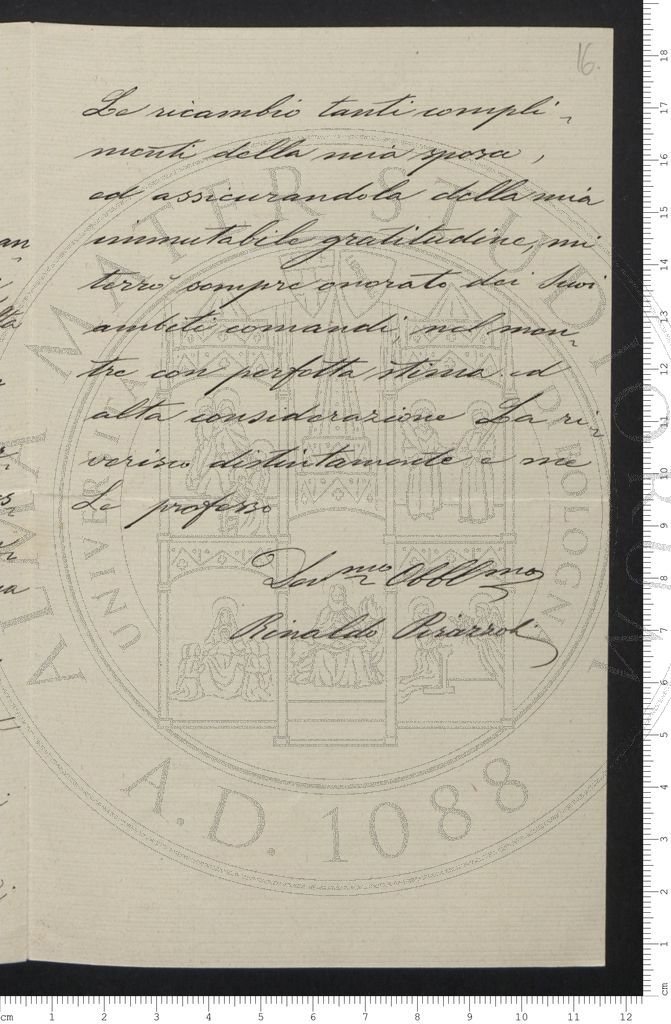 16.
Le ricambio tanti compli-
menti della mia sposa,
ed assicurandola della mia
immutabile gratitudine, mi
terrò sempre onorato dei Suoi
ambiti comandi, nel men-
tre con perfetta stima ed
alta considerazione La ri-
verisco distintamente e me
Le professo
Dev.mo Obblmo
Rinaldo Pirazzoli
ALMA MATER STUDIORUM
UNIVERSITÀ DI BOLOGNA
A.D. 1088